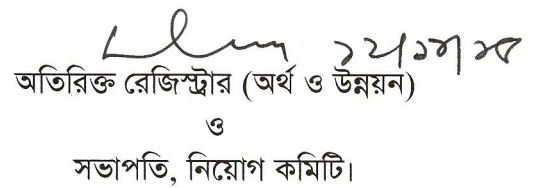 অতিরিক্ত রেজিস্ট্রার (অর্থ ও উন্নয়ন)
ও
সভাপতি, নিয়োগ কমিটি।